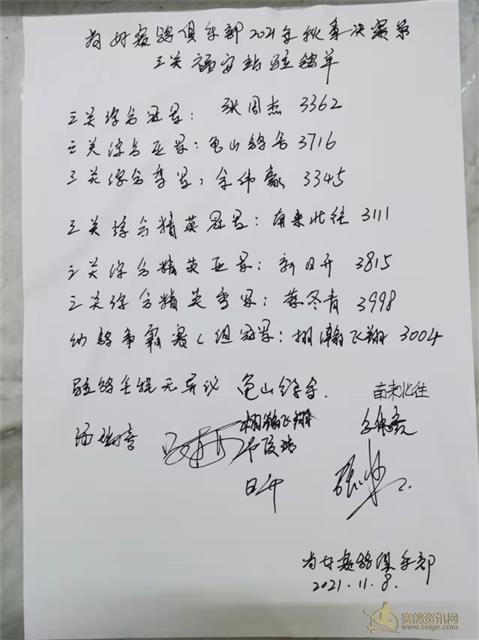 为好赛鸽俱乐部2021年秋季决赛第
三关 验鸽单
三关综合冠军：张周杰 3362
三关综合亚军：龟山鸽舍 3716
三关综合季军：余伟 3345
三关综合精英冠军：南来北往 3111
三关综合精英亚军： 日升 3815
三关综合精英季军：蔡冬青 3998
幼鸽争霸赛C组冠军：翱瀚飞翔 3004
验鸽 无异议 龟山鸽舍 南来北往
翱瀚飞翔
日升
为好赛鸽俱乐部
2021.11.8.
赛鸽资讯网
www.saige.com